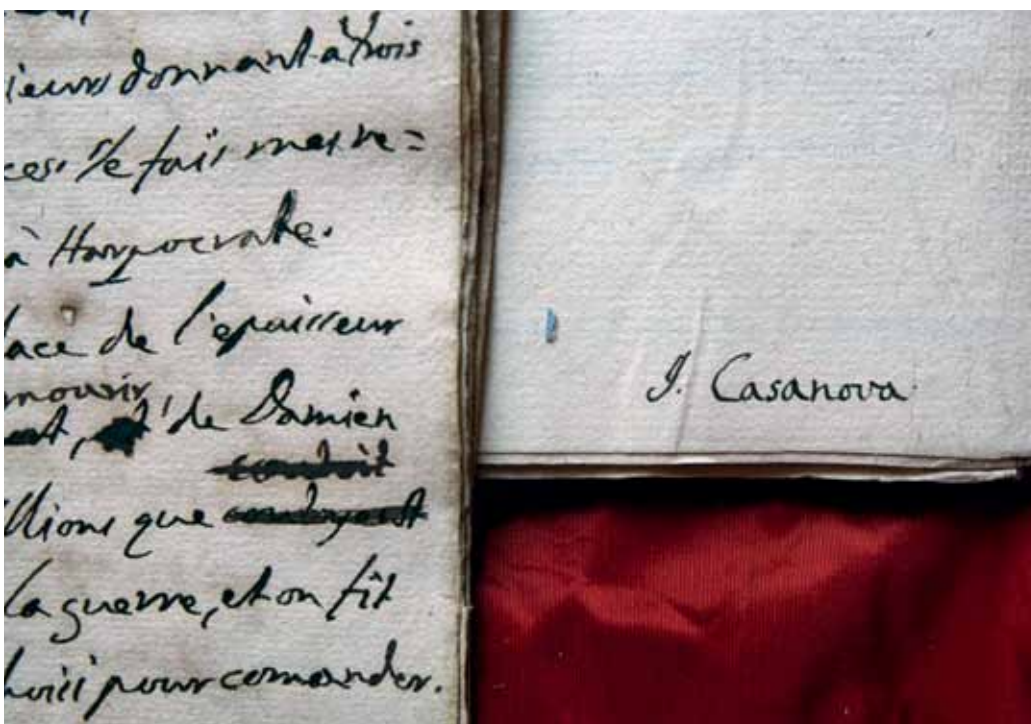 ieurs donnant à trois
ces. Je fais mes re=
à Harpocrate.
lace de l'epaisseur
mourir,
de Damien
conduit
llions que
la guerre, et on fit
hoisi pour comander.
J. Casanova